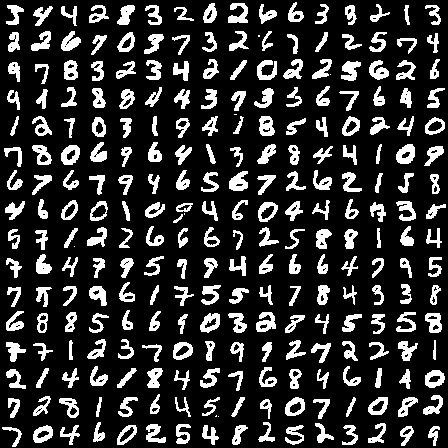 3 4 4 2 8 3 2 0 2 6 6 3 8 2 1 3
2 2 6 9 0 8 7 3 2 6 7 1 2 5 7 4
9 7 8 3 2 3 4 2 1 0 2 2 5 6 2 6
9 1 2 8 8 4 4 3 7 3 3 6 7 6 4 5
1 2 7 0 3 1 9 4 7 8 5 4 0 2 4 0
7 8 0 6 9 6 4 1 3 8 8 4 4 1 0 9
6 7 6 7 9 4 6 5 6 7 2 6 2 1 5 8
4 6 0 0 1 0 9 4 6 0 4 4 6 7 3 8
5 7 1 2 2 6 6 6 7 2 5 8 8 1 6 4
7 6 4 7 9 5 9 9 4 6 6 6 4 7 9 5
7 7 9 6 1 7 5 5 4 7 8 4 3 3 8
6 8 8 5 6 6 9 0 3 2 8 4 5 5 5 8
7 7 1 2 3 7 0 8 9 9 2 7 2 2 8 1
2 1 4 6 1 8 4 5 7 6 8 4 6 1 4 0
7 2 8 1 5 6 4 5 1 9 0 7 1 0 8 2
7 0 4 6 0 2 5 4 8 2 5 2 3 2 9 9